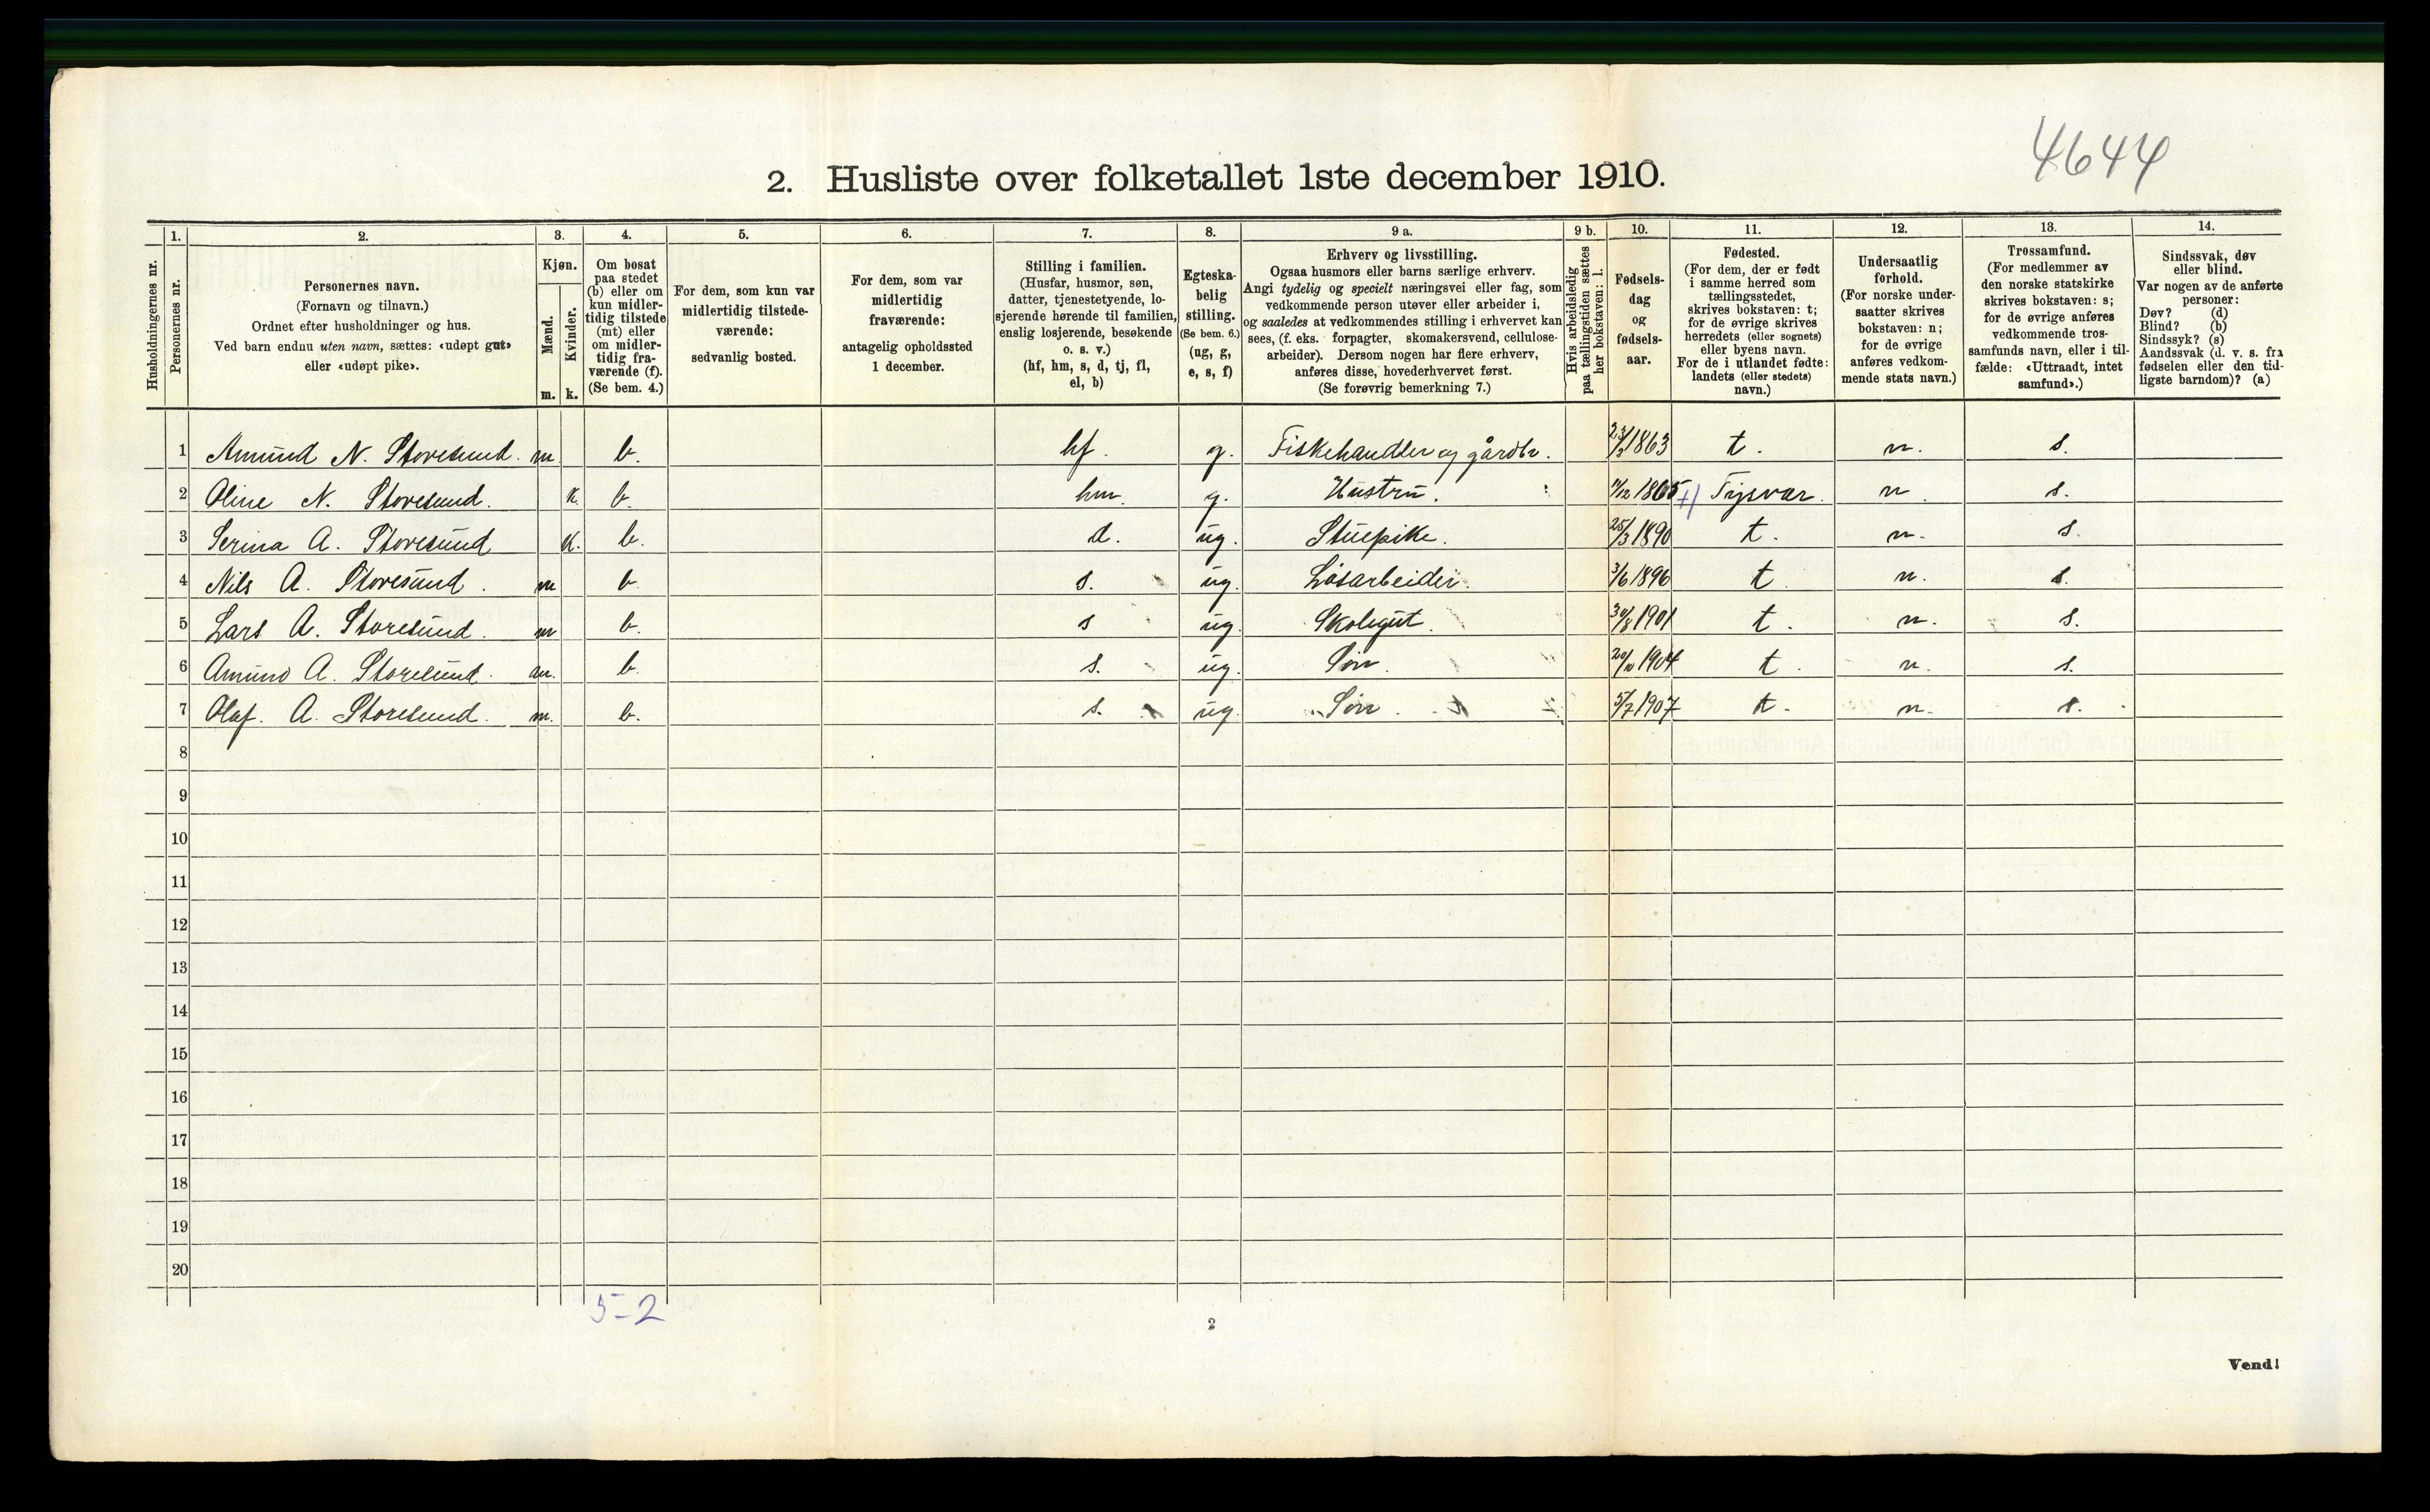 4644
2. Husliste over folketallet 1ste december 1910.
Husholdningernes nr.
1. Personernes nr.
2. Personernes navn.
(Fornavn og tilnavn.)
Ordnet efter husholdninger og hus.
Ved barn endnu uten navn, sættes: «udøpt gut»
eller «udøpt pike».
3. Kjøn.
Mænd. m.
Kvinder. k.
4. Om bosat
paa stedet
(b) eller om
kun midler-
tidig tilstede
(mt) eller
om midler-
tidig fra-
værende (f).
(Se bem. 4.)
5. For dem, som kun var
midlertidig tilstede-
værende:
sedvanlig bosted.
6. For dem, som var
midlertidig
fraværende:
antagelig opholdssted
1 december.
7. Stilling i familien.
(Husfar, husmor, søn,
datter, tjenestetyende, lo-
sjerende hørende til familien,
enslig losjerende, besøkende
o. s. v.)
(hf, hm, s, d, tj, fl,
el, b)
8. Egteska-
belig
stilling.
(Se bem. 6.)
(ug, g,
e, s, f)
9 a. Erhverv og livsstilling.
Ogsaa husmors eller barns særlige erhverv.
Angi tydelig og specielt næringsvei eller fag, som
vedkommende person utøver eller arbeider i,
og saaledes at vedkommendes stilling i erhvervet kan
sees, (f. eks. forpagter, skomakersvend, cellulose-
arbeider). Dersom nogen har flere erhverv,
anføres disse, hovederhvervet først.
(Se forøvrig bemerkning 7.)
9 b. Hvis arbeidsledig
paa tællingstiden sættes
her bokstaven: l.
10. Fødsels-
dag
og
fødsels-
aar.
11. Fødested.
(For dem, der er født
i samme herred som
tællingsstedet,
skrives bokstaven: t;
for de øvrige skrives
herredets (eller sognets)
eller byens navn.
For de i utlandet fødte:
landets (eller stedets)
navn.)
12. Undersaatlig
forhold.
(For norske under-
saatter skrives
bokstaven: n;
for de øvrige
anføres vedkom-
mende stats navn.)
13. Trossamfund.
(For medlemmer av
den norske statskirke
skrives bokstaven: s;
for de øvrige anføres
vedkommende tros-
samfunds navn, eller i til-
fælde: «Uttraadt, intet
samfund».)
14. Sindssvak, døv
eller blind.
Var nogen av de anførte
personer:
Døv? (d)
Blind? (b)
Sindssyk? (s)
Aandssvak (d. v. s. fra
fødselen eller den tid-
ligste barndom)? (a)
1 Amund N. Storesund. m b. hf. g. Fiskehandler og gårdbr. 23/2 1863 t. n. s.
2 Oline N. Storesund. k. b. hm. g. Hustru. 11/12 1865 +) Tysvær. n. s.
3 Serina A. Storesund K. b. d. ug. Stuepike. 25/3 1890 t. n. s.
4 Nils A. Storesund. m b. s. ug. Løsarbeider. 3/6 1896 t n. s.
5 Lars A. Storesund. m b. s ug. Skolegut. 30/8 1901 t. n. s.
6 Amund A. Storesund. m. b. s. ug. Søn. 20/10 1904 t. n. s.
7 Olaf. A. Storesund. m. b. s. ug. Søn. 5/7 1907 t. n. s.
8
9
10
11
12
13
14
15
16
17
18
19
20
5-2
2
Vend!